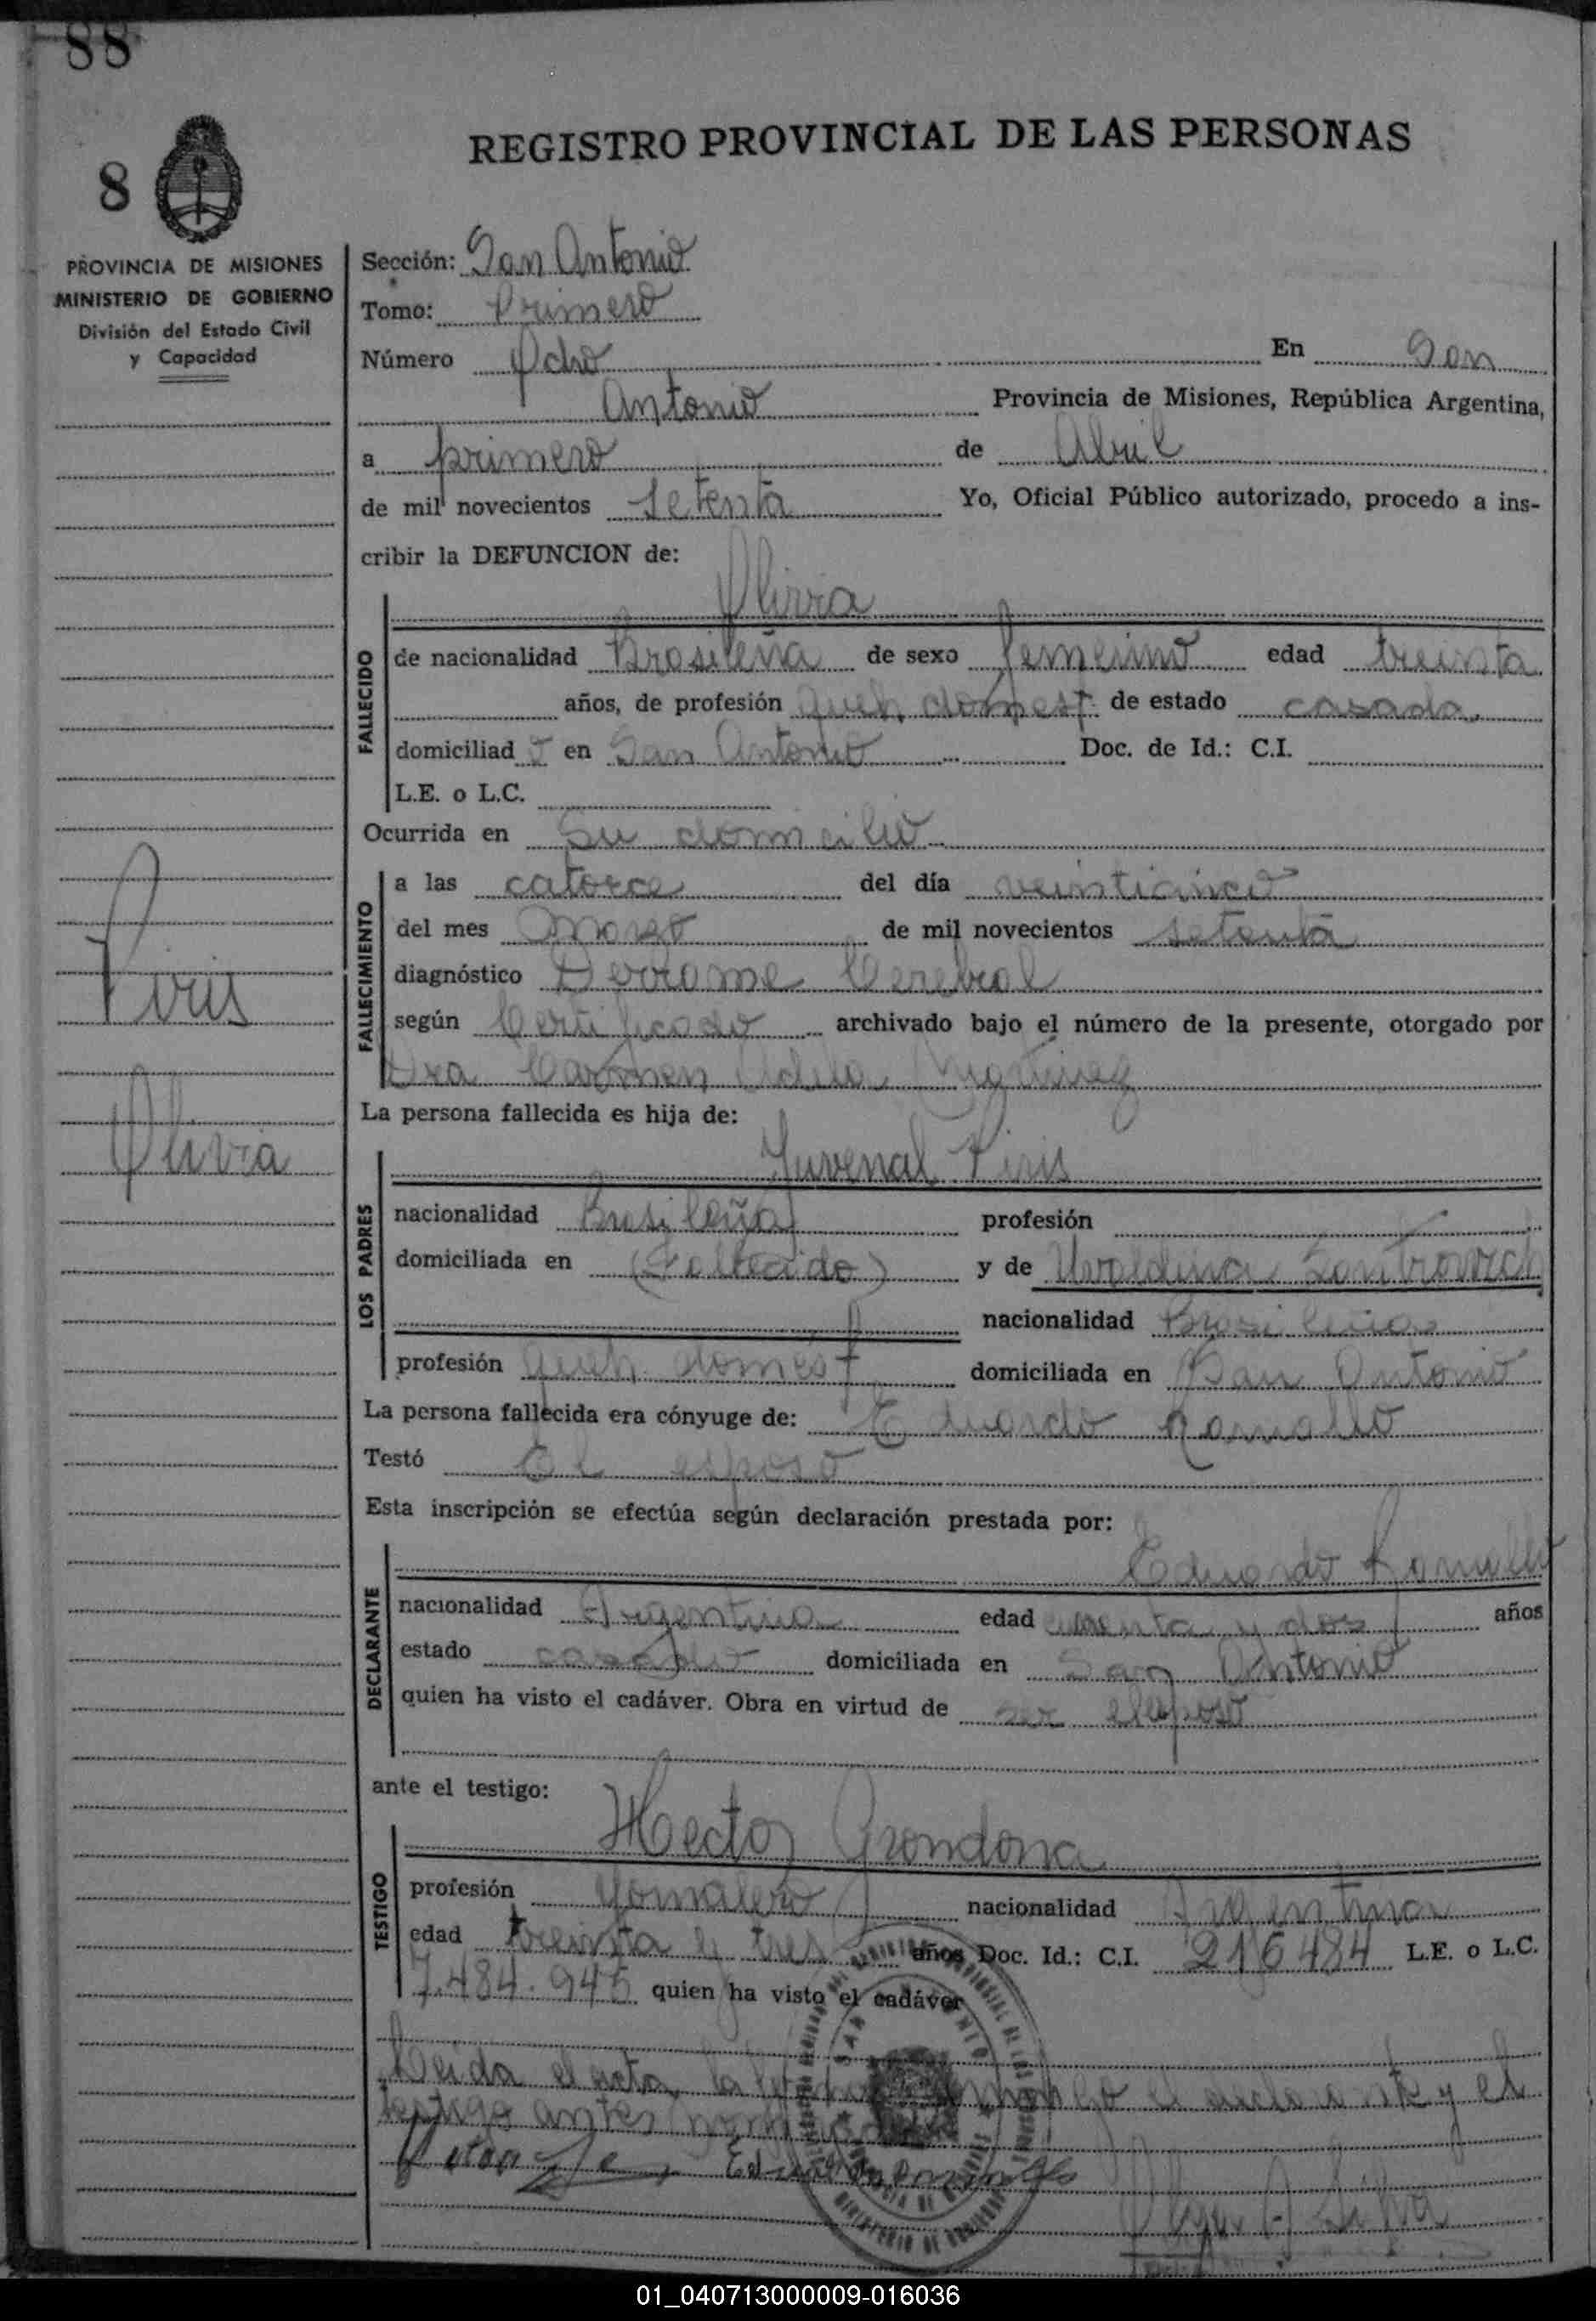 88
8
REGISTRO PROVINCIAL DE LAS PERSONAS
PROVINCIA DE MISIONES
MINISTERIO DE GOBIERNO
División del Estado Civil
y Capacidad
Sección: San Antonio
Tomo: Primero
Número Ocho En San
Antonio Provincia de Misiones, República Argentina,
a primero de Abril
de mil novecientos setenta Yo, Oficial Público autorizado, procedo a ins-
cribir la DEFUNCION de:
Olivia
FALLECIDO
de nacionalidad Brasileña de sexo femenino edad treinta
años, de profesión queh. domest. de estado casada
domiciliad o en San Antonio Doc. de Id.: C.I.
L.E. o L.C.
Ocurrida en Su domicilio
FALLECIMIENTO
a las catorce del día veinticinco
del mes Marzo de mil novecientos setenta
diagnóstico Derrame Cerebral
según Certificado archivado bajo el número de la presente, otorgado por
Dra Carmen
La persona fallecida es hija de:
Piris
Olivia
Juvenal Piris
LOS PADRES
nacionalidad Brasileña profesión
domiciliada en (Fallecido) y de
nacionalidad Brasileña
profesión queh. domest domiciliada en San Antonio
La persona fallecida era cónyuge de: Eduardo Ramallo
Testó El esposo
Esta inscripción se efectúa según declaración prestada por:
Eduardo Ramallo
DECLARANTE
nacionalidad Argentina edad cuarenta y dos años
estado casado domiciliada en San Antonio
quien ha visto el cadáver. Obra en virtud de ser el esposo
ante el testigo:
Hector Grondona
TESTIGO
profesión Jornalero nacionalidad Argentina
edad treinta y tres años Doc. Id.: C.I. 216484 L.E. o L.C.
7.484.945 quien ha visto el cadáver
Leida el acta, la y el
testigo antes
01_040713000009-016036